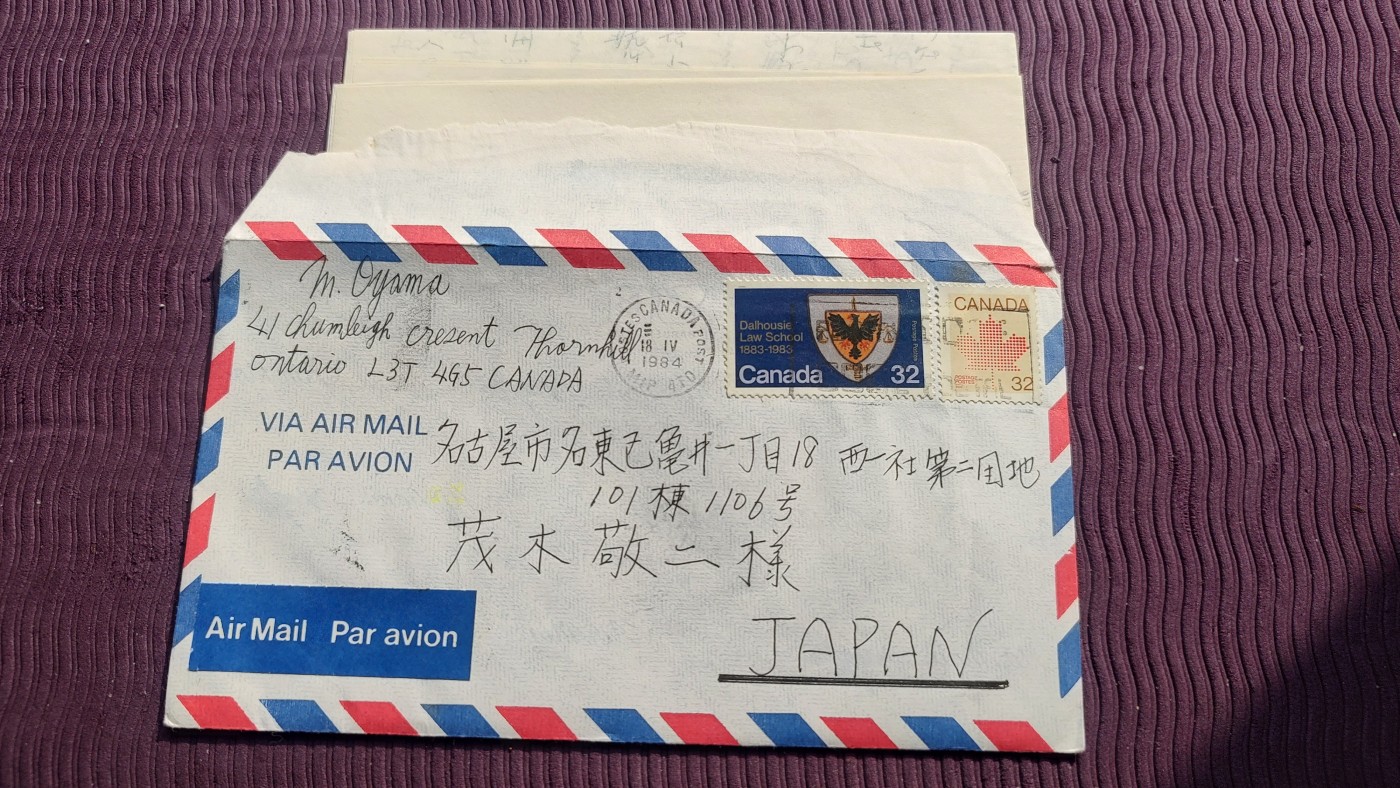 M. Oyama
41 Chumleigh cresent Thornhill
Ontario L3T 4G5 CANADA
CANADA POST
18 IV
1984
Dalhousie
Law School
1883-1983
Postage Postes
Canada 32
CANADA
POSTAGE
POSTES
32
VIA AIR MAIL
PAR AVION
名古屋市名東己亀井一丁目18 西一社第二団地
101棟1106号
茂木敬二様
Air Mail Par avion
JAPAN